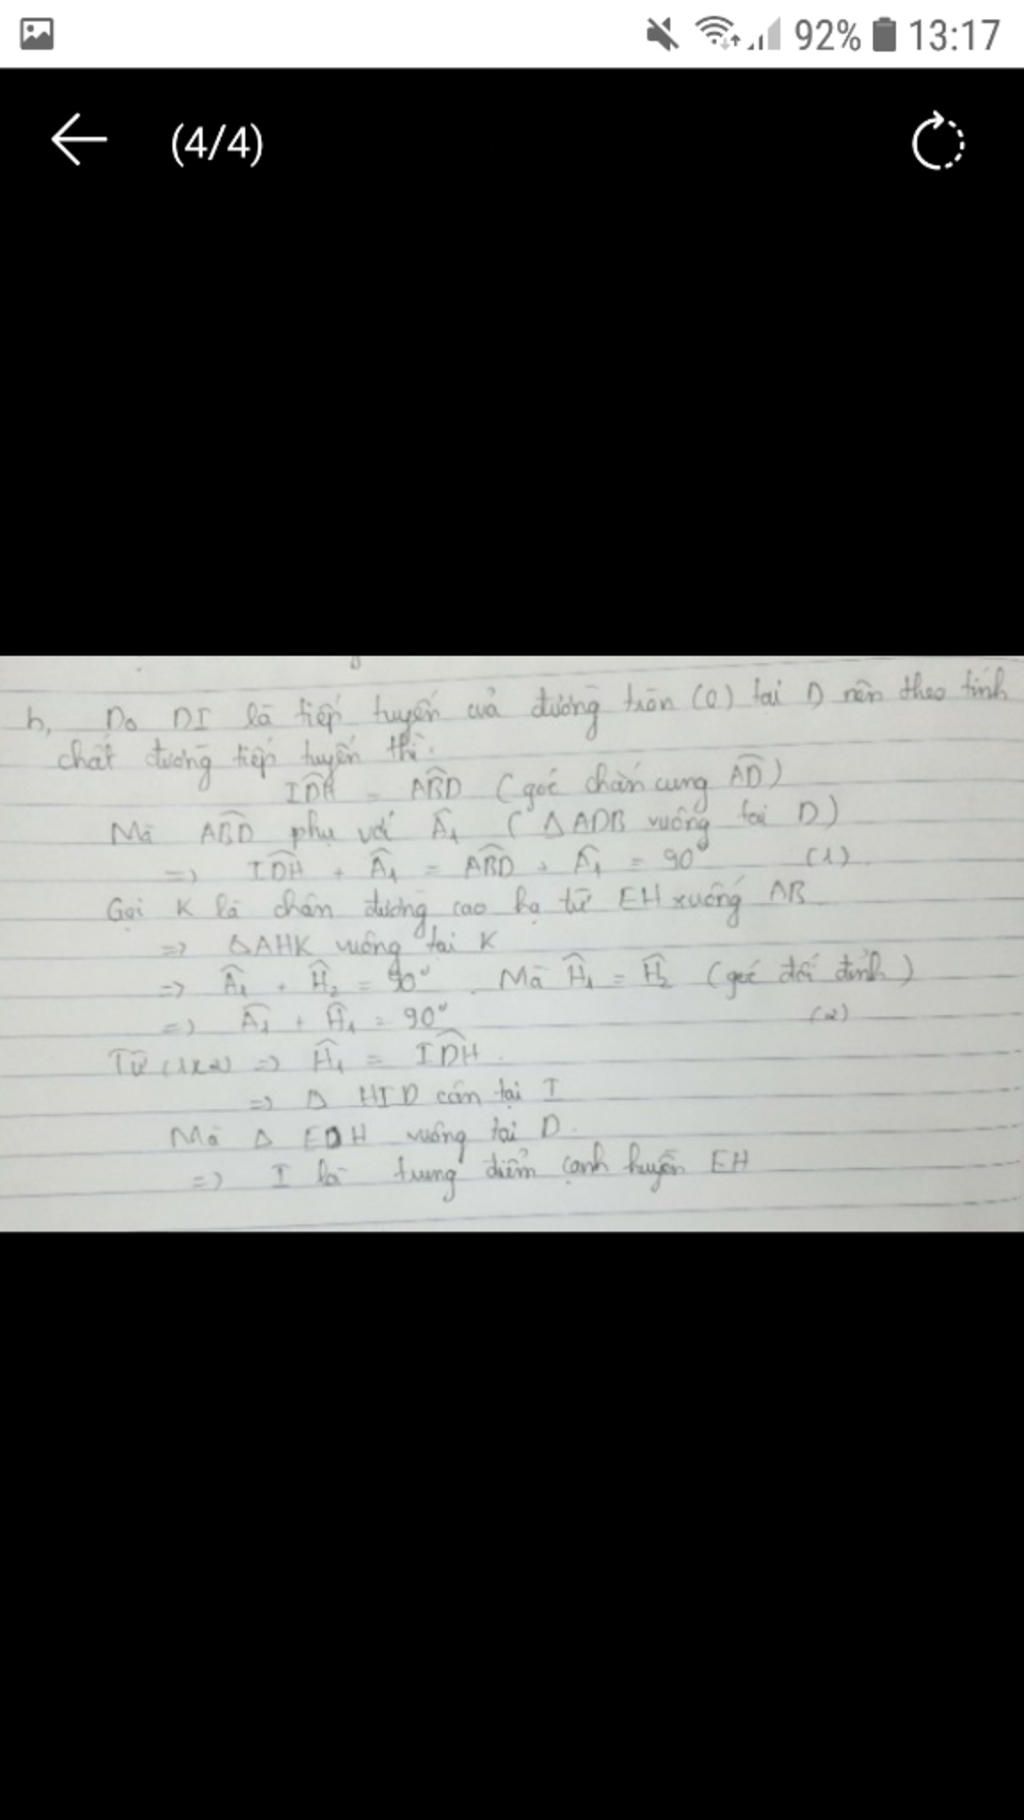 92% 13:17
(4/4)
b, Do DI là tiếp tuyến của đường tròn (O) tại D nên theo tính
chất đường tiếp tuyến thì.
IDH = ABD (góc chắn cung AD)
Mà ABD phụ với Â₁ (ΔADB vuông tại D)
=> IDH + Â₁ = ABD + Â₁ = 90° (1).
Gọi K là chân đường cao hạ từ EH xuống AB
=> ΔAHK vuông tại K
=> Â₁ + Ĥ₂ = 90°. Mà Ĥ₁ = Ĥ₂ (góc đối đỉnh)
=> Â₁ + Ĥ₁ = 90° (2)
Từ (1)(2) => Ĥ₁ = IDH.
=> Δ HID cân tại I
Mà Δ EDH vuông tại D.
=> I là trung điểm cạnh huyền EH